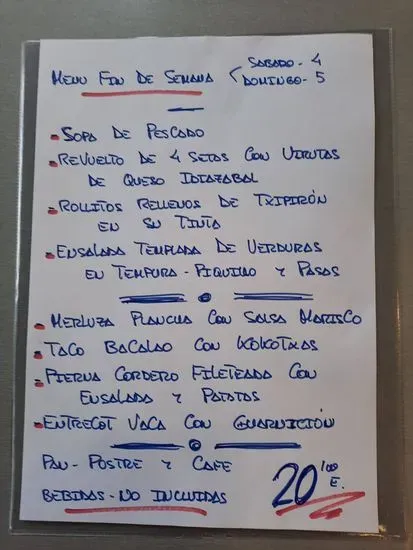 MENU FIN DE SEMANA
SABADO - 4
DOMINGO - 5
SOPA DE PESCADO
REVUELTO DE 4 SETAS CON VIRUTAS
DE QUESO IDIAZABAL
ROLLITOS RELLENOS DE TXIPIRÓN
EN SU TINTA
ENSALADA TEMPLADA DE VERDURAS
EN TEMPURA - PIQUILLO Y PASAS
MERLUZA PLANCHA CON SALSA MARISCO
TACO BACALAO CON KOKOTXAS
PIERNA CORDERO FILETEADA CON
ENSALADA Y PATATAS
ENTRECOT VACA CON GUARNICIÓN
PAN - POSTRE Y CAFE
BEBIDAS - NO INCLUIDAS
20'00 E.